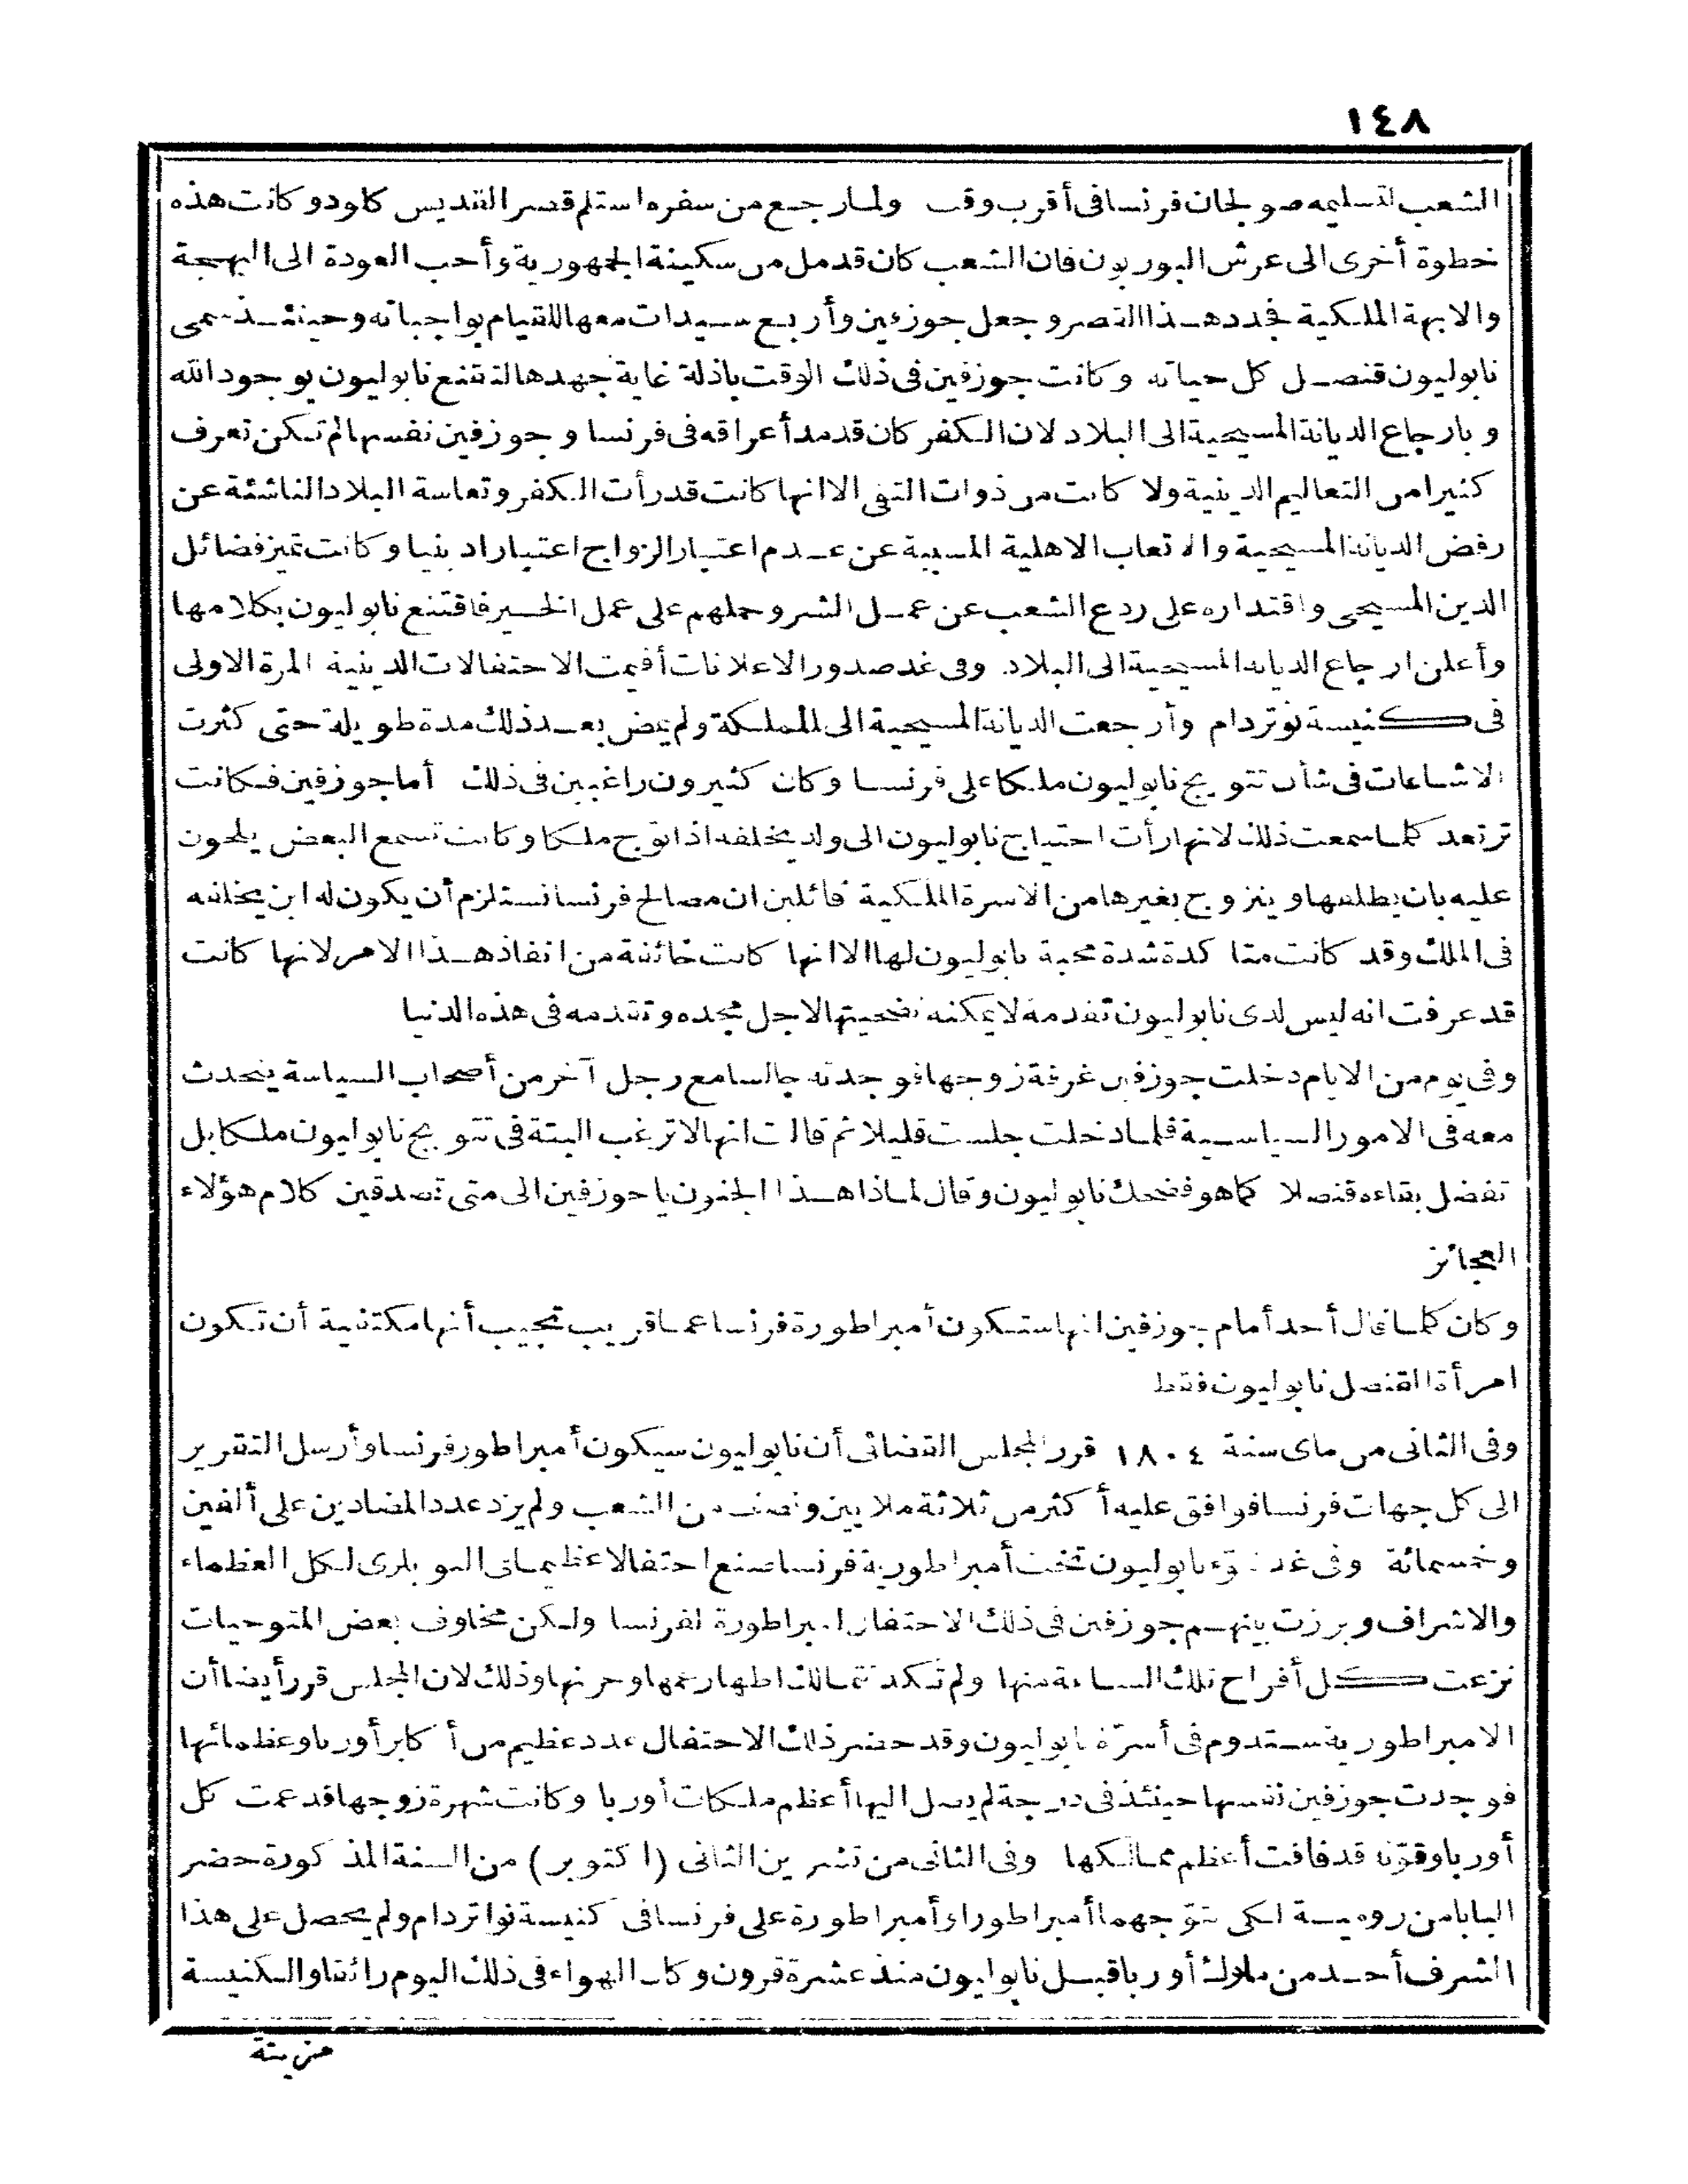 ١٤٨
الشعب لتسليمه صولجان فرنسا فى أقرب وقت ولما رجع من سفره استلم قصر القديس كلودو كانت هذه
خطوة أخرى الى عرش البوربون فان الشعب كان قد مل من سكينة الجمهورية وأحب العودة الى البهجة
والابهة الملكية فجدد هذا القصر وجعل جوزفين وأربع سيدات معها للقيام بواجباته وحينئذ سمى
نابوليون قنصل كل حياته وكانت جوزفين فى ذلك الوقت باذلة غاية جهدها لتقنع نابوليون بوجود الله
وبارجاع الديانة المسيحية الى البلاد لان الكفر كان قد مد أعراقه فى فرنسا وجوزفين نفسها لم تكن تعرف
كثيرا من التعاليم الدينية ولا كانت من ذوات التقى الا انها كانت قد رأت الكفر وتعاسة البلاد الناشئة عن
رفض الديانة المسيحية والاتعاب الاهلية المسببة عن عدم اعتبار الزواج اعتبارا دينيا وكانت تميز فضائل
الدين المسيحى واقتداره على ردع الشعب عن عمل الشر وحملهم على عمل الخير فاقتنع نابوليون بكلامها
وأعلن ارجاع الديانة المسيحية الى البلاد. وفى غد صدور الاعلانات أقيمت الاحتفالات الدينية المرة الاولى
فى كنيسة نوتردام وأرجعت الديانة المسيحية الى المملكة ولم يمض بعد ذلك مدة طويلة حتى كثرت
الاشاعات فى شأن تتويج نابوليون ملكا على فرنسا وكان كثيرون راغبين فى ذلك أما جوزفين فكانت
ترتعد كلما سمعت ذلك لانها رأت احتياج نابوليون الى ولد يخلفه اذا توج ملكا وكانت تسمع البعض يلحون
عليه بان يطلقها ويتزوج بغيرها من الاسرة الملكية قائلين ان مصالح فرنسا تستلزم أن يكون له ابن يخلفه
فى الملك وقد كانت متأكدة شدة محبة نابوليون لها الا انها كانت خائفة من انفاذ هذا الامر لانها كانت
قد عرفت انه ليس لدى نابوليون تقدمة لا يمكنه تضحيتها لاجل مجده وتقدمه فى هذه الدنيا
وفى يوم من الايام دخلت جوزفين غرفة زوجها فوجدته جالسا مع رجل آخر من أصحاب السياسة يتحدث
معه فى الامور السياسية فلما دخلت جلست قليلا ثم قالت انها لا ترغب البتة فى تتويج نابوليون ملكا بل
تفضل بقاءه قنصلا كما هو فضحك نابوليون وقال لماذا هذا الجنون يا جوزفين الى متى تصدقين كلام هؤلاء
العجائز
وكان كلما قال أحد أمام جوزفين انها ستكون أمبراطورة فرنسا عما قريب تجيب أنها مكتفية أن تكون
امرأة القنصل نابوليون فقط
وفى الثانى من ماى سنة ١٨٠٤ قرر المجلس القضائى أن نابوليون سيكون أمبراطور فرنسا وأرسل التقرير
الى كل جهات فرنسا فوافق عليه أكثر من ثلاثة ملايين ونصف من الشعب ولم يزد عدد المضادين على ألفين
وخمسمائة وفى غد نابوليون تخت أمبراطورية فرنسا صنع احتفالا عظيما فى التويلرى لكل العظماء
والاشراف وبرزت بينهم جوزفين فى ذلك الاحتفال امبراطورة لفرنسا ولكن مخاوف بعض
نزعت كل أفراح تلك الساعة منها ولم تكد تتمالك اظهار غمها وحزنها وذلك لان المجلس قرر أيضا أن
الامبراطورية ستدوم فى أسرة نابوليون وقد حضر ذلك الاحتفال عدد عظيم من أكابر أوربا وعظمائها
فوجدت جوزفين نفسها حينئذ فى درجة لم يصل اليها أعظم ملكات أوربا وكانت شهرة زوجها قد عمت كل
أوربا وقوّته قد فاقت أعظم ممالكها وفى الثانى من تشرين الثانى (اكتوبر) من السنة المذكورة حضر
البابا من رومية لكى يتوّجهما أمبراطورا وأمبراطورة على فرنسا فى كنيسة نواتردام ولم يحصل على هذا
الشرف أحد من ملوك أوربا قبل نابوليون منذ عشرة قرون وكان الهواء فى ذلك اليوم رائقا والكنيسة
مزينة